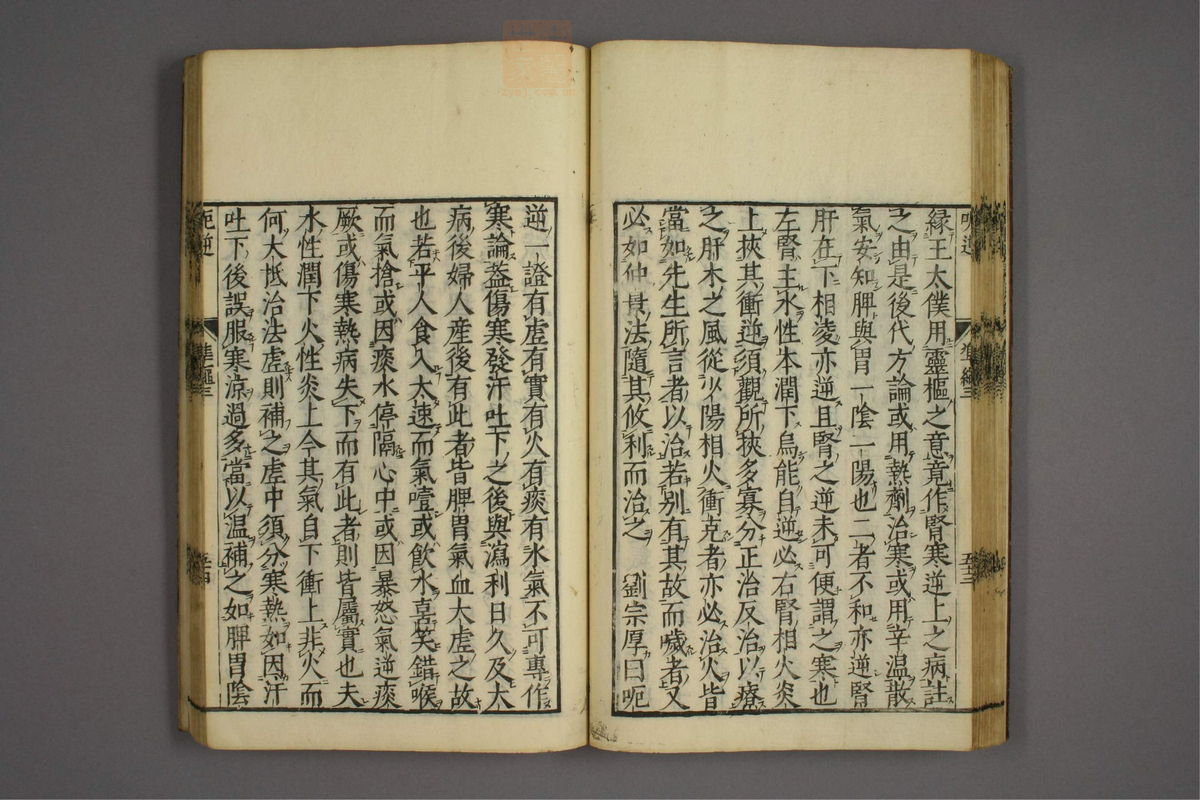 緣王太僕用靈樞之意竟作腎寒逆上之病註
之由是後代方論或用熱劑治寒或用辛温散
氣安知脾與胃一陰一陽也二者不和亦逆腎
肝在下相凌亦逆且腎之逆未可便謂之寒也
左腎主水性本潤下烏能自逆必右腎相火炎
上挾其衝逆須觀所挾多寡分正治反治以療
之肝木之風從少陽相火衝克者亦必治火皆
當如先生所言者以治若別有其故而噦者又
必如仲景法隨其攸利而治之 劉宗厚曰呃
逆一證有虛有實有火有痰有水氣不可專作
寒論蓋傷寒發汗吐下之後與瀉利日久及大
病後婦人産後有此者皆脾胃氣血大虛之故
也若平人食入太速而氣噎或飲水喜笑錯喉
而氣搶或因痰水停隔心中或因暴怒氣逆痰
厥或傷寒熱病失下而有此者則皆屬實也夫
水性潤下火性炎上今其氣自下衝上非火而
何大抵治法虛則補之虛中須分寒熱如因汗
吐下後誤服寒涼過多當以温補之如脾胃陰
呃逆
準繩三
五十四